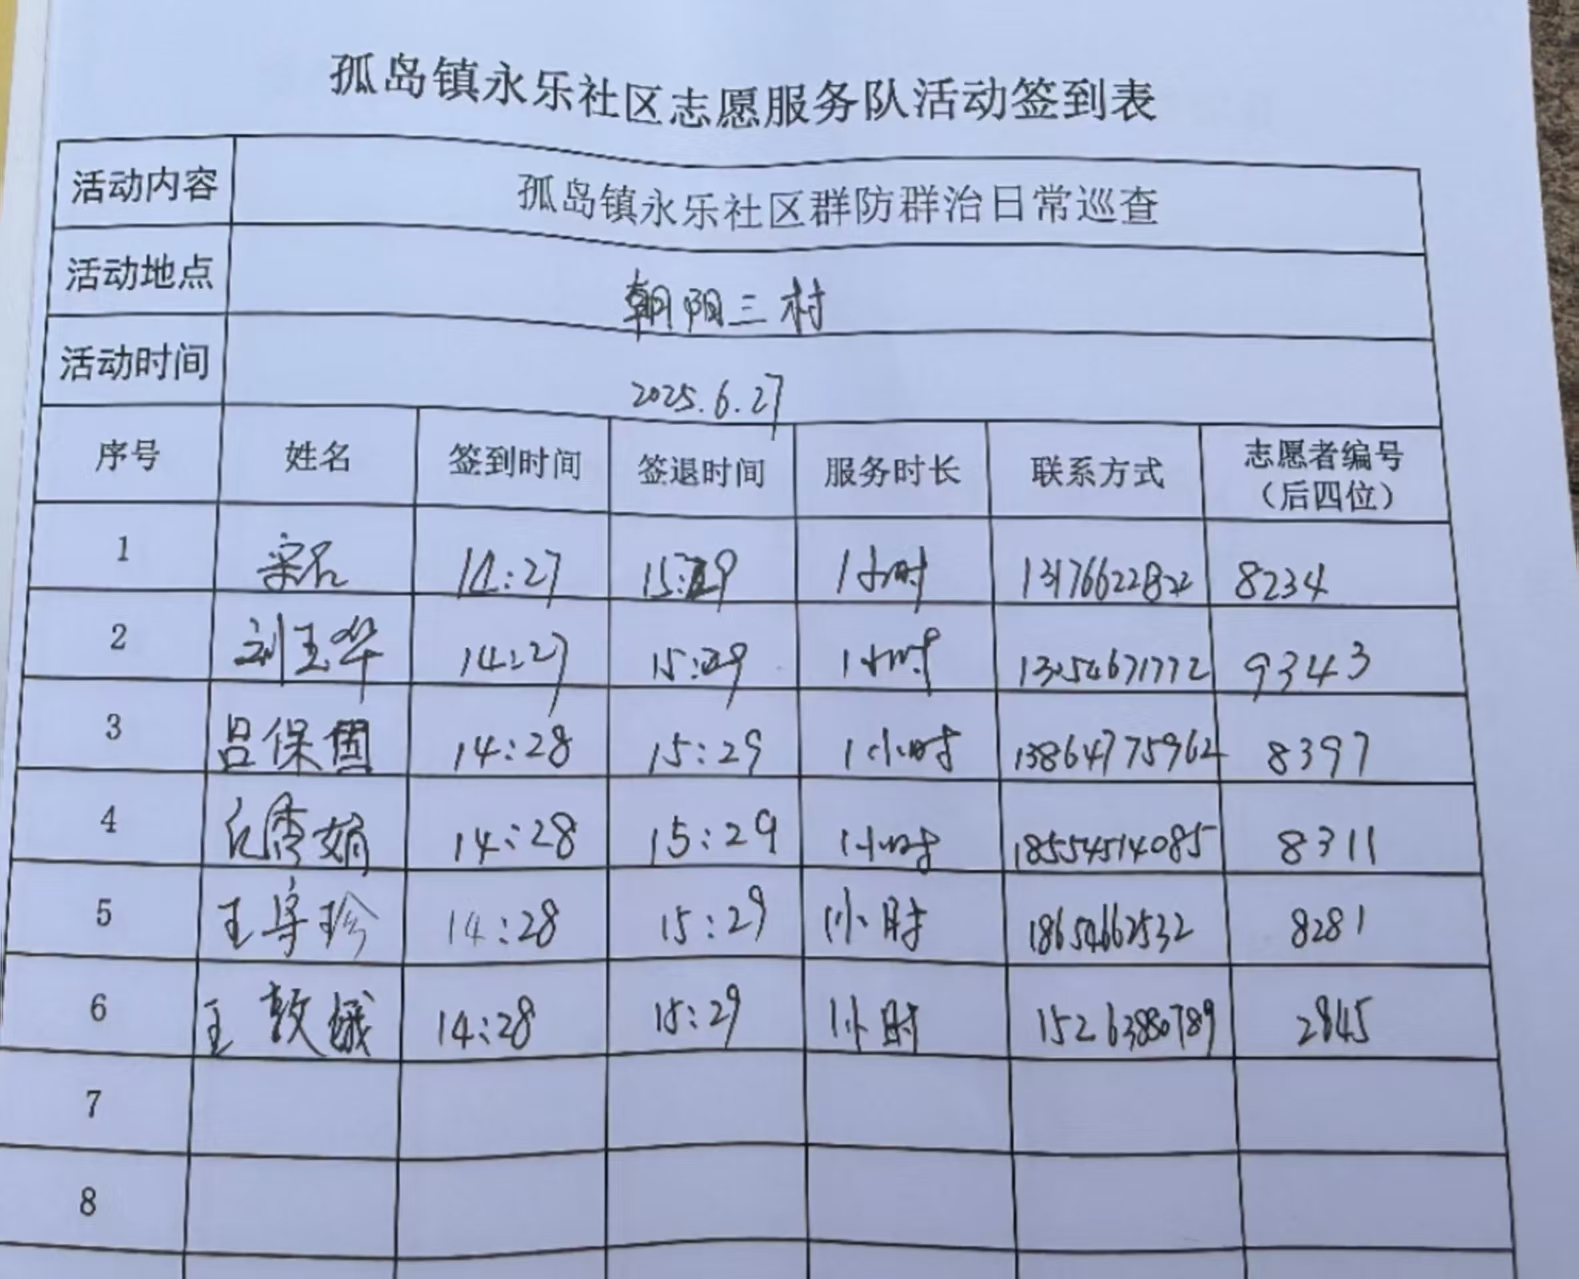 孤岛镇永乐社区志愿服务队活动签到表
活动内容 孤岛镇永乐社区群防群治日常巡查
活动地点 朝阳三村
活动时间 2025.6.27
序号 姓名 签到时间 签退时间 服务时长 联系方式 志愿者编号
（后四位）
1 14:27 15:29 1小时 13176622822 8234
2 刘玉华 14:27 15:29 1小时 13254671772 9343
3 吕保国 14:28 15:29 1小时 13864775962 8397
4 14:28 15:29 1小时 18554514085 8311
5 王守珍 14:28 15:29 1小时 18654662532 8281
6 王 14:28 15:29 1小时 15263880789 2845
7
8